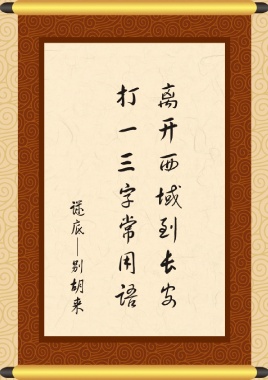 离开西域到长安
打一三字常用语
谜底——别胡来